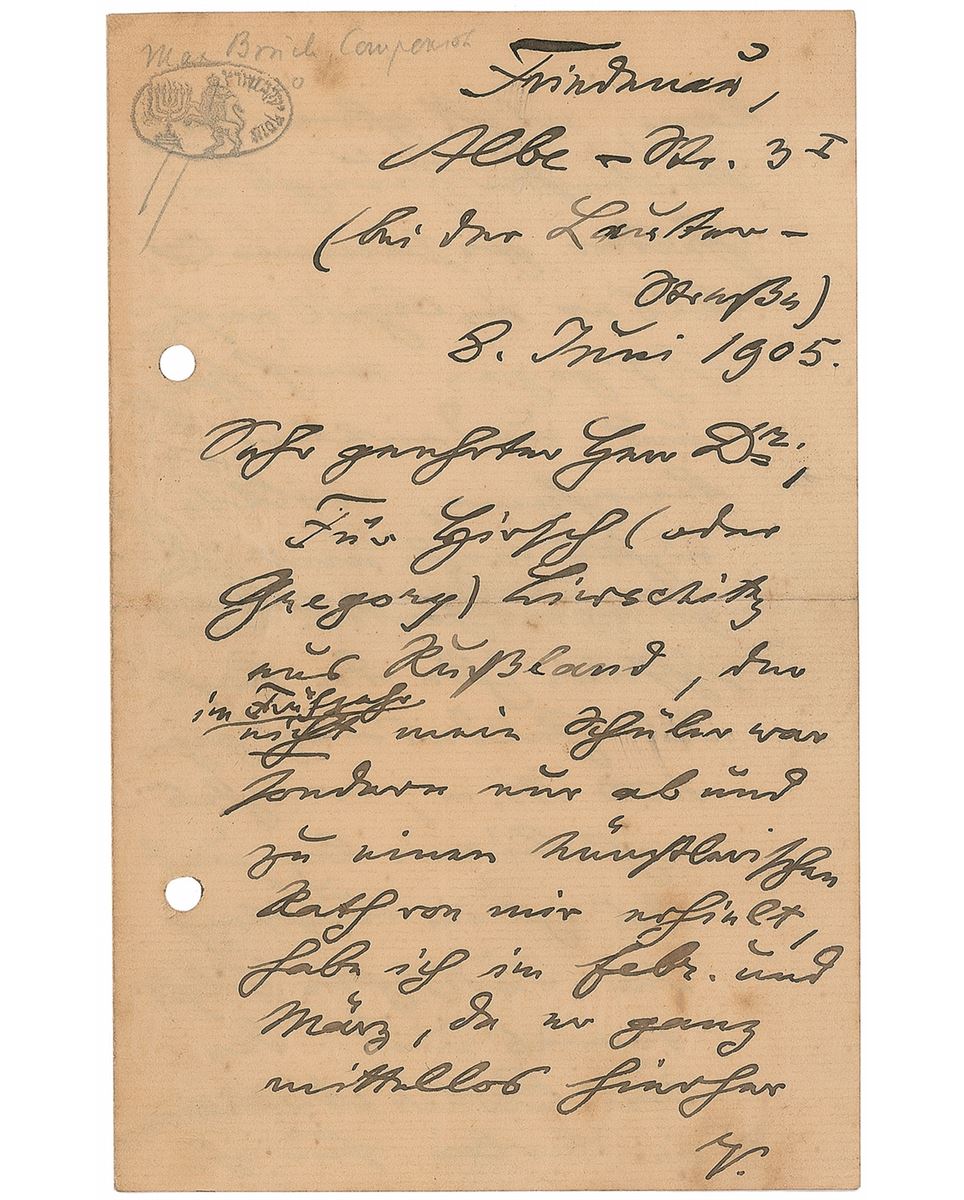 Max Bruch, Componist
Friedenau,
Albe-Str. 3 I
(bei der Lauter-
Straße)
3. Juni 1905.
Sehr geehrter Herr Dr.,
Für Hirsch (oder
Gregory) Liwschitz
aus Rußland, der
im Frühjahr
nicht mein Schüler war
sondern nur ab und
zu einen künstlerischen
Rath von mir erhielt,
habe ich im Febr. und
März, da er ganz
mittellos hierher